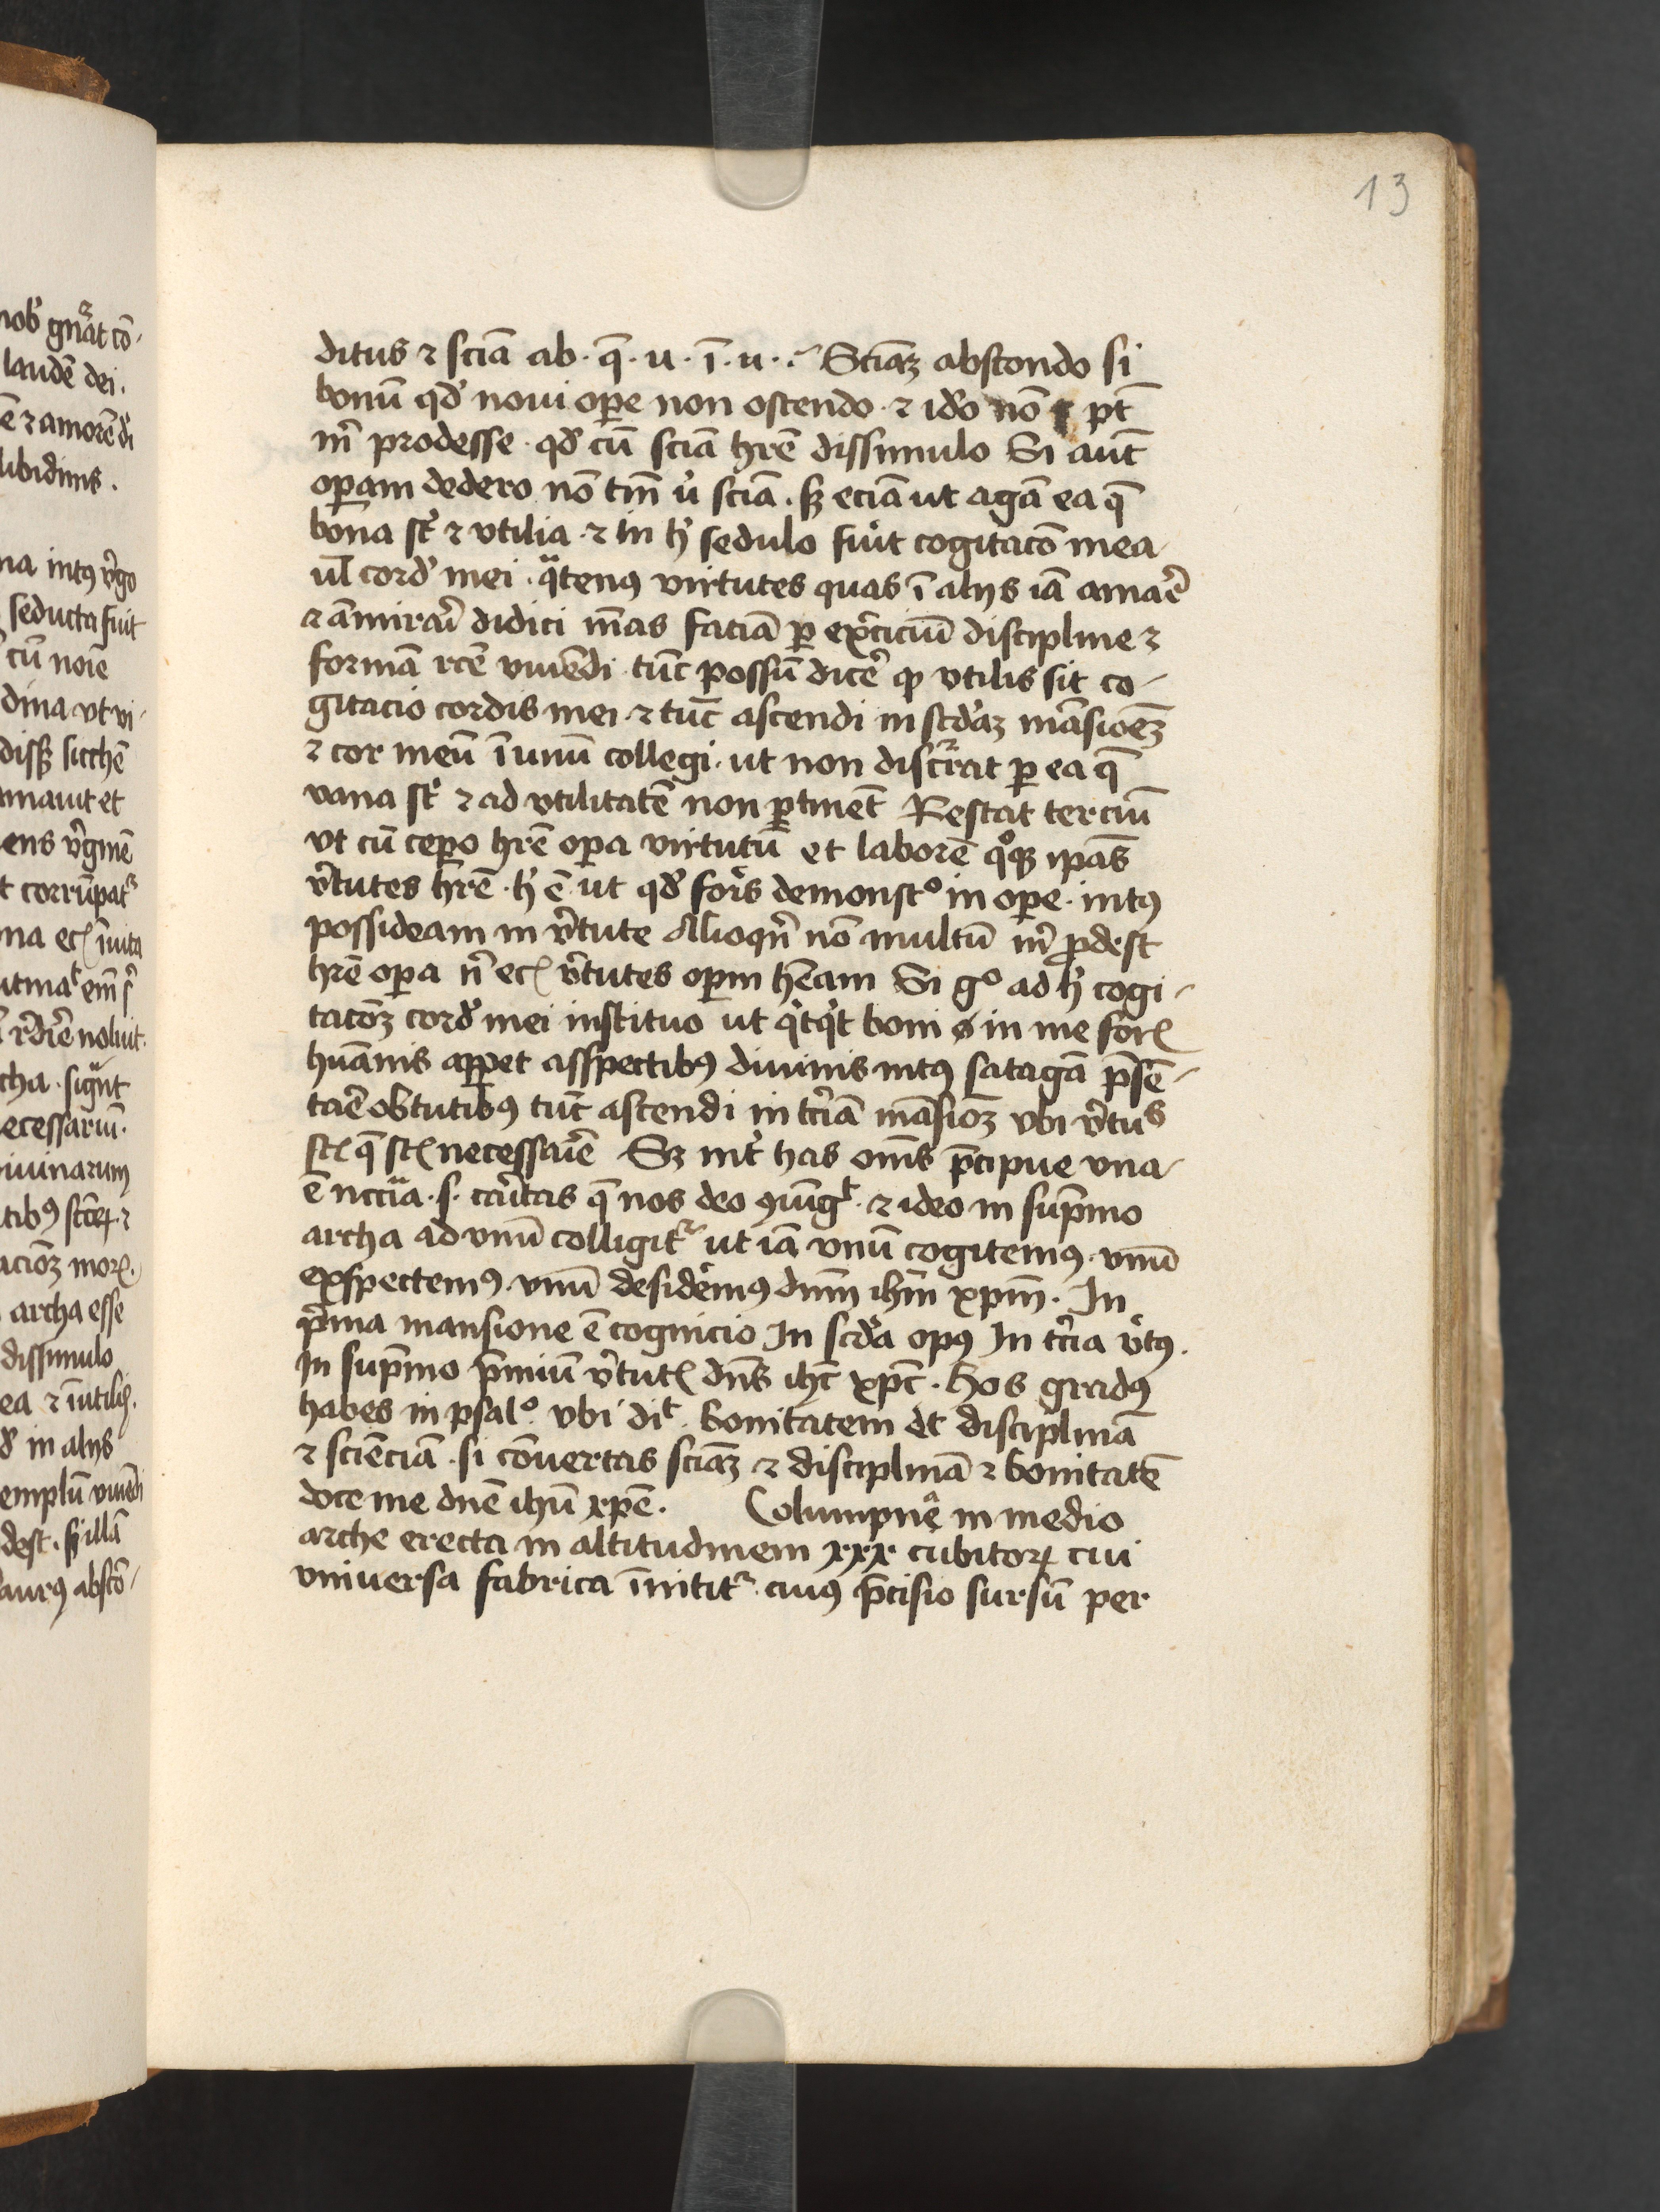 13
nob̕ gn̄at cō-
laudē dei.
ē ⁊ amorē di
libidinis.
na intꝰ v̓go
seducta fuit
cū noīe
dina vt vi-
amauit et
ens v̓ginē
t corrūpat᷑
noluit.
cha. sigͣnt
ecessariū.
iuinarum
archa esse
dissimulo
ea ⁊ īutil
in alijs
emplū viuēdi
dest. sꝫ illā
aurꝰ abscō-
ditus ⁊ sciā ab. q̄. u. ī. u. Sciāꝫ abscondo si
bonū qd̕ noui oꝑe non ostendo. ⁊ idō nō pt̄
m̄ prodesse. qd̕ cū sciā hr̄e dissimulo Si aūt
oꝑam dedero nō tm̄ u̓ sciā. sꝫ eciā ut agā ea q̄
bona st̕ ⁊ vtilia. ⁊ in h̕ sedulo fu̓it cogitacō mea
ul̄ cord̕ mei. qͣtenꝰ virtutes quas ī alijs iā amar̄e
⁊ āmirar̄i didici m̄as faciā ꝑ ex̓ciciū discipline ⁊
formā rc̄e viuēdi tūc possū dicē ꝙ vtilis sit co-
gitacio cordis mei. ⁊ tūc ascendi in scd̓aꝫ māsioēꝫ
⁊ cor meū ī unū collegi. ut non discr̄rat ꝑ ea q̄
vana st̕ ⁊ ad vtilitatē non ꝑtinēt Restat terciū
vt cū ceꝑo hr̄e oꝑa virtutū et laborē qͦqꝫ ip̄as
v̓tutes hr̄e. h̕ ē. ut qd̕ for̓s demonstͦ in oꝑe. intꝰ
possideam in v̓tute Alioqn̄ nō multū m̄ ꝓdest
hr̄e oꝑa n̄ ec̄ v̓tutes oꝑm hēam Si gͦ ad h̕ cogi-
tacōꝫ cord̕ mei instituo ut qͥcqͥt boni in me for̄
huānis apꝑet asspectibꝰ diuinis intꝰ satagā p̄sē-
tar̄e obtutibꝰ tūc ascendi in tc̓iā māsioꝫ vbi v̓tus
st̄ q̄ st̄ necessar̄ie Sꝫ int̕ has om̄s p̄cipue vna
ē nc̄cia. s. car̓itas q̄ nos deo ꝯiūgᵗ. ⁊ ideo in sup̄mo
archa ad vnū colligit᷑ ut iā vnū cogitemꝰ. vnū
exspectemꝰ. vnū desider̓mꝰ dn̄m ih̄m xp̄m. In
p̓ma mansione ē cognicio In scd̓a opꝰ In tc̓ia v̓tꝰ.
In sup̄mo p̄miū v̓tut̄ dn̄s ih̄c xp̄c. Hos gradꝰ
habes in psalͦ. vbi diᵗ. bonitatem et disciplinā
⁊ sciēciā. si cōuertas sciāꝫ ⁊ disciplinā ⁊ bonitatē
doce me dn̄e ih̄u xp̄e. Columpnę in medio
arche erecta in altitudinem xxx cubitoꝝ cui
vniuersa fabrica īnitit᷑. cuiꝰ p̄cisio sursū per